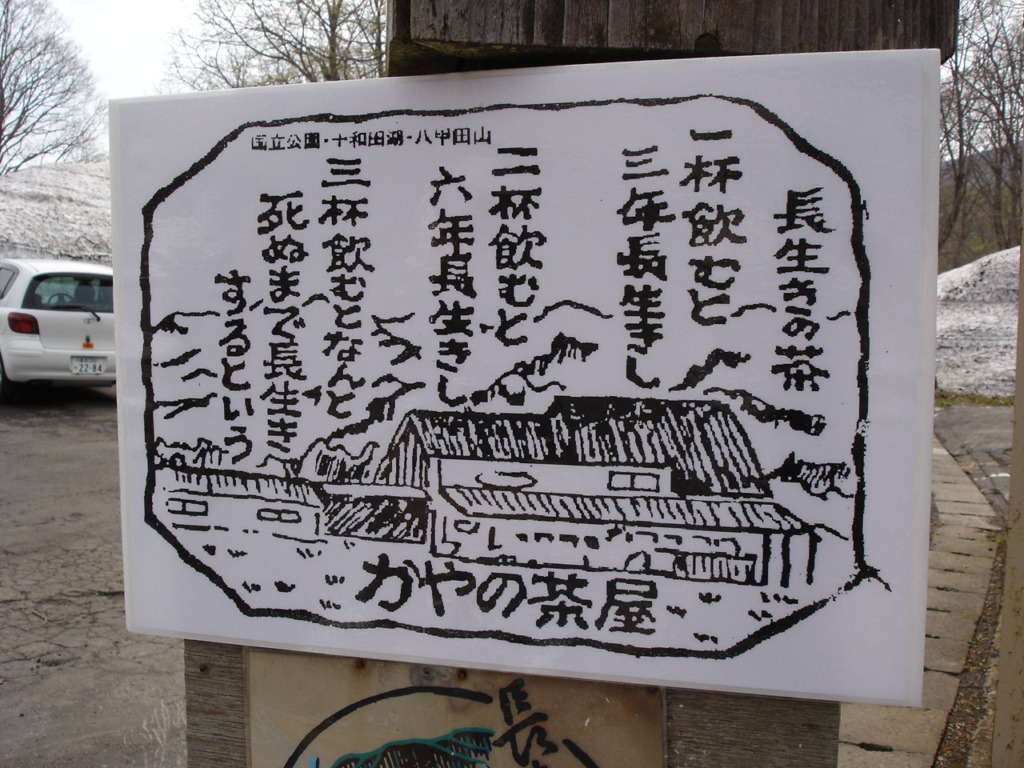 長生きの茶
一杯飲むと
三年長生きし
二杯飲むと
六年長生きし
三杯飲むとなんと
死ぬまで長生き
するという
国立公園・十和田湖・八甲田山
かやの茶屋
22-84
長